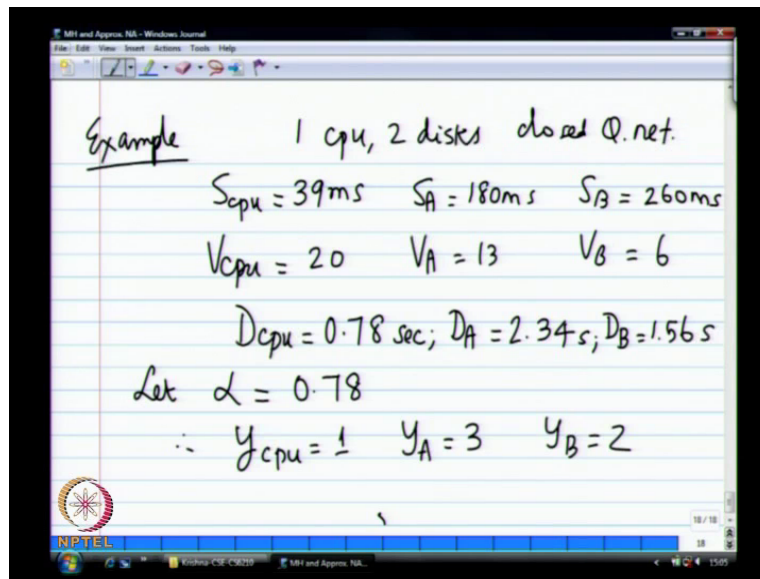 MH and Approx. NA - Windows Journal
File Edit View Insert Actions Tools Help
Example 1 cpu, 2 disks closed Q. net.
Scpu = 39ms SA = 180ms SB = 260ms
Vcpu = 20 VA = 13 VB = 6
Dcpu = 0.78 sec; DA = 2.34 s; DB = 1.56 s
Let α = 0.78
∴ ycpu = 1 yA = 3 yB = 2
NPTEL
18 / 18
18
Krishna-CSE-CS6210 MH and Approx. NA... 15:05